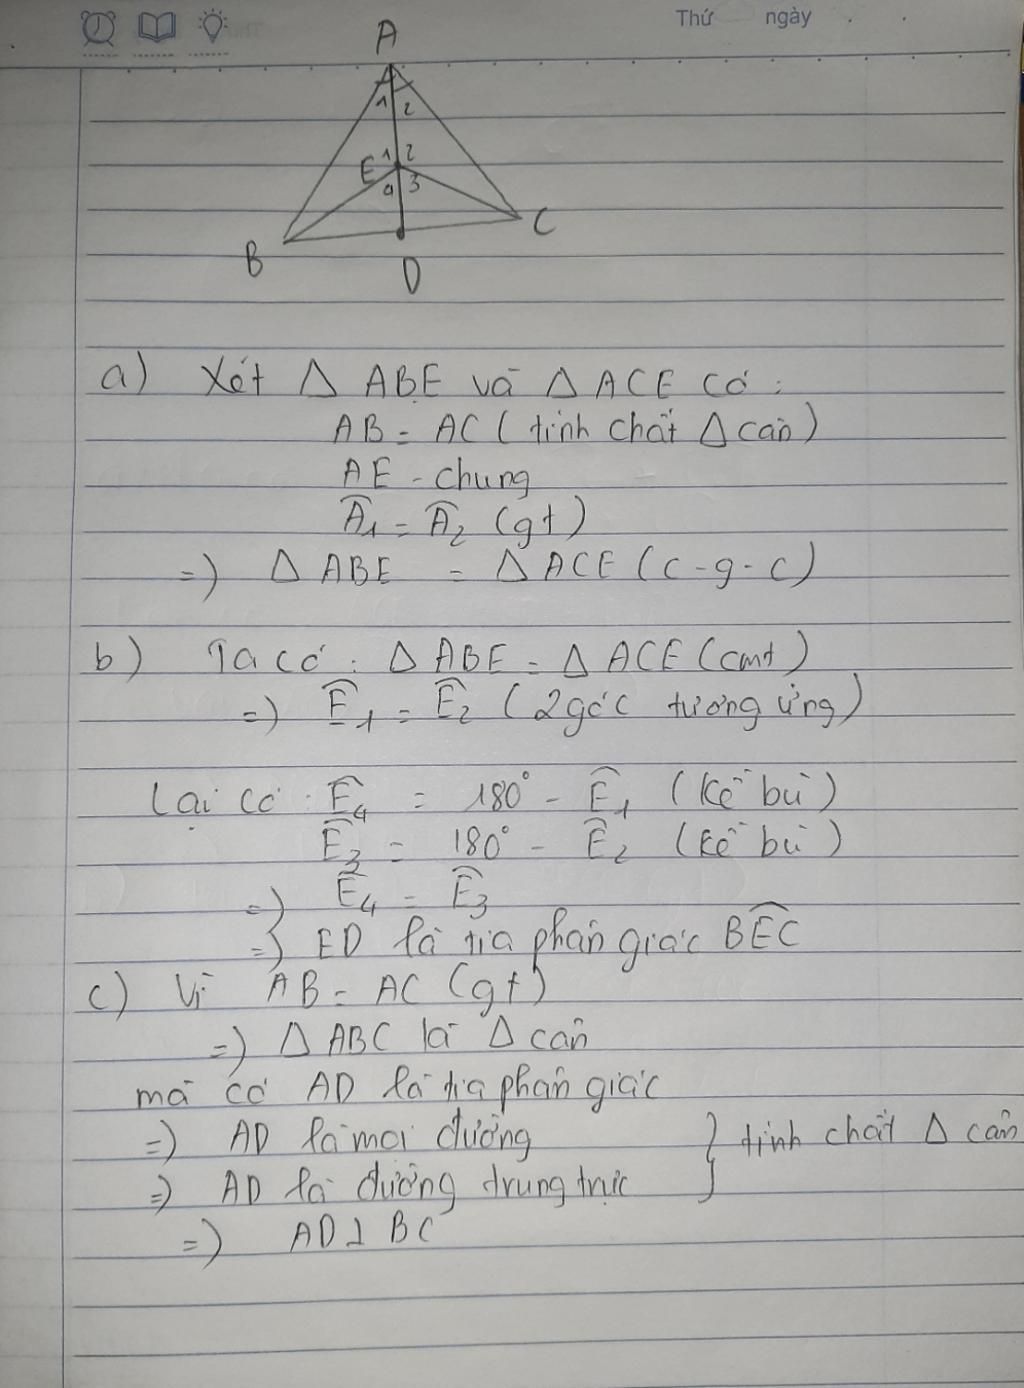 Thứ ngày
A
1 2
1 2
E
4 3
B
C
D
a) Xét Δ ABE và Δ ACE có :
AB = AC ( tính chất Δ cân )
AE - chung
Â1 = Â2 (gt)
=) Δ ABE = Δ ACE ( c - g - c )
b) Ta có : Δ ABE = Δ ACE (cmt)
=) Ê1 = Ê2 ( 2 góc tương ứng )
Lại có : Ê4 = 180° - Ê1 ( kề bù )
Ê3 = 180° - Ê2 ( kề bù )
=) Ê4 = Ê3
=) ED là tia phân giác BÊC
c) Vì AB = AC (gt)
=) Δ ABC là Δ cân
mà có AD là tia phân giác
=) AD là mọi đường } tính chất Δ cân
=) AD là đường trung trực
=) AD ⊥ BC